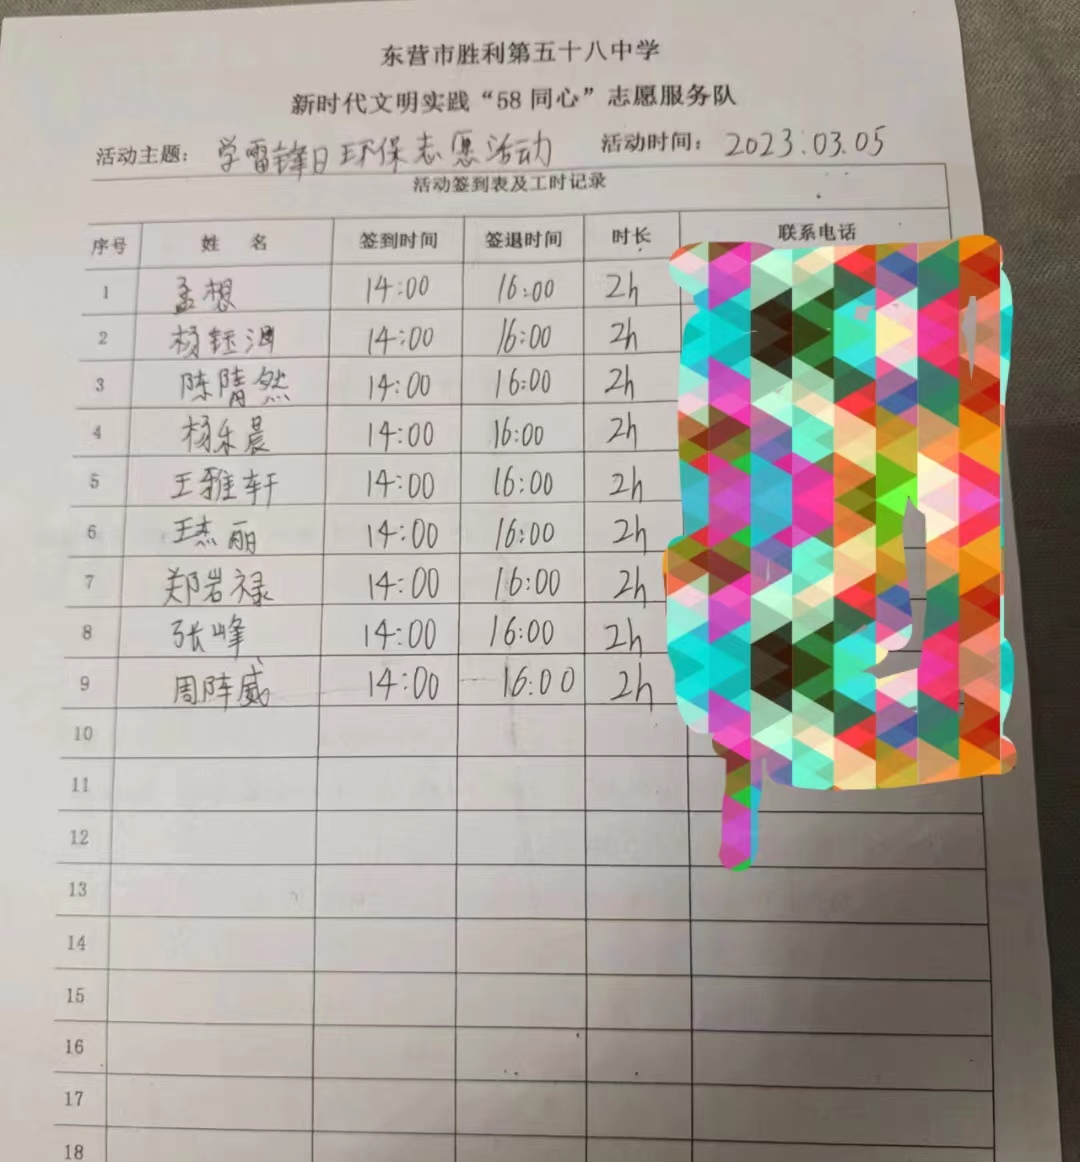 东营市胜利第五十八中学
新时代文明实践“58同心”志愿服务队
活动主题: 学雷锋日环保志愿活动 活动时间: 2023.03.05
活动签到表及工时记录
序号 姓名 签到时间 签退时间 时长 联系电话
1 孟想 14:00 16:00 2h
2 杨钰 14:00 16:00 2h
3 陈隋然 14:00 16:00 2h
4 杨乐晨 14:00 16:00 2h
5 王雅轩 14:00 16:00 2h
6 王杰丽 14:00 16:00 2h
7 郑岩禄 14:00 16:00 2h
8 张峰 14:00 16:00 2h
9 周阵威 14:00 16:00 2h
10
11
12
13
14
15
16
17
18